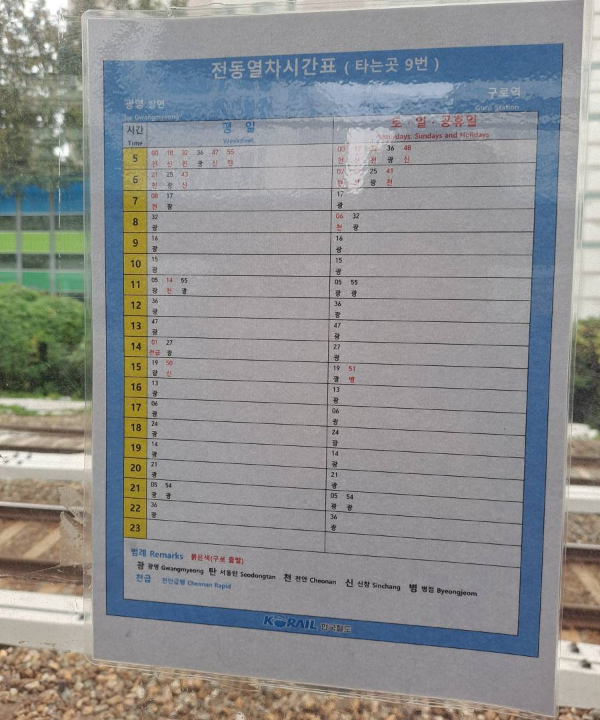 전동열차시간표 ( 타는곳 9번 )
광명 방면 구로역
for Gwangmyeong Guro Station
시간 평 일 토 일·공휴일
Time Weekdays Saturdays, Sundays and Holidays
5 00 18 32 36 47 55 00 36 48
천 신 천 광 신 천 광 신
6 21 25 43 25 41
천 광 신 광 천
7 08 17 17
천 광 광
8 32 06 32
광 천 광
9 16 16
광 광
10 15 15
광 광
11 05 14 55 05 55
광 천 광 광 광
12 36 36
광 광
13 47 47
광 광
14 01 27 27
천급 광 광
15 19 50 19 51
광 신 광 병
16 13 13
광 광
17 06 06
광 광
18 24 24
광 광
19 14 14
광 광
20 21 21
광 광
21 05 54 05 54
광 광 광 광
22 36 36
광 광
23
범례 Remarks 붉은색(구로 출발)
광 광명 Gwangmyeong 탄 서동탄 Seodongtan 천 천안 Cheonan 신 신창 Sinchang 병 병점 Byeongjeom
천급 천안급행 Cheonan Rapid
KORAIL 한국철도